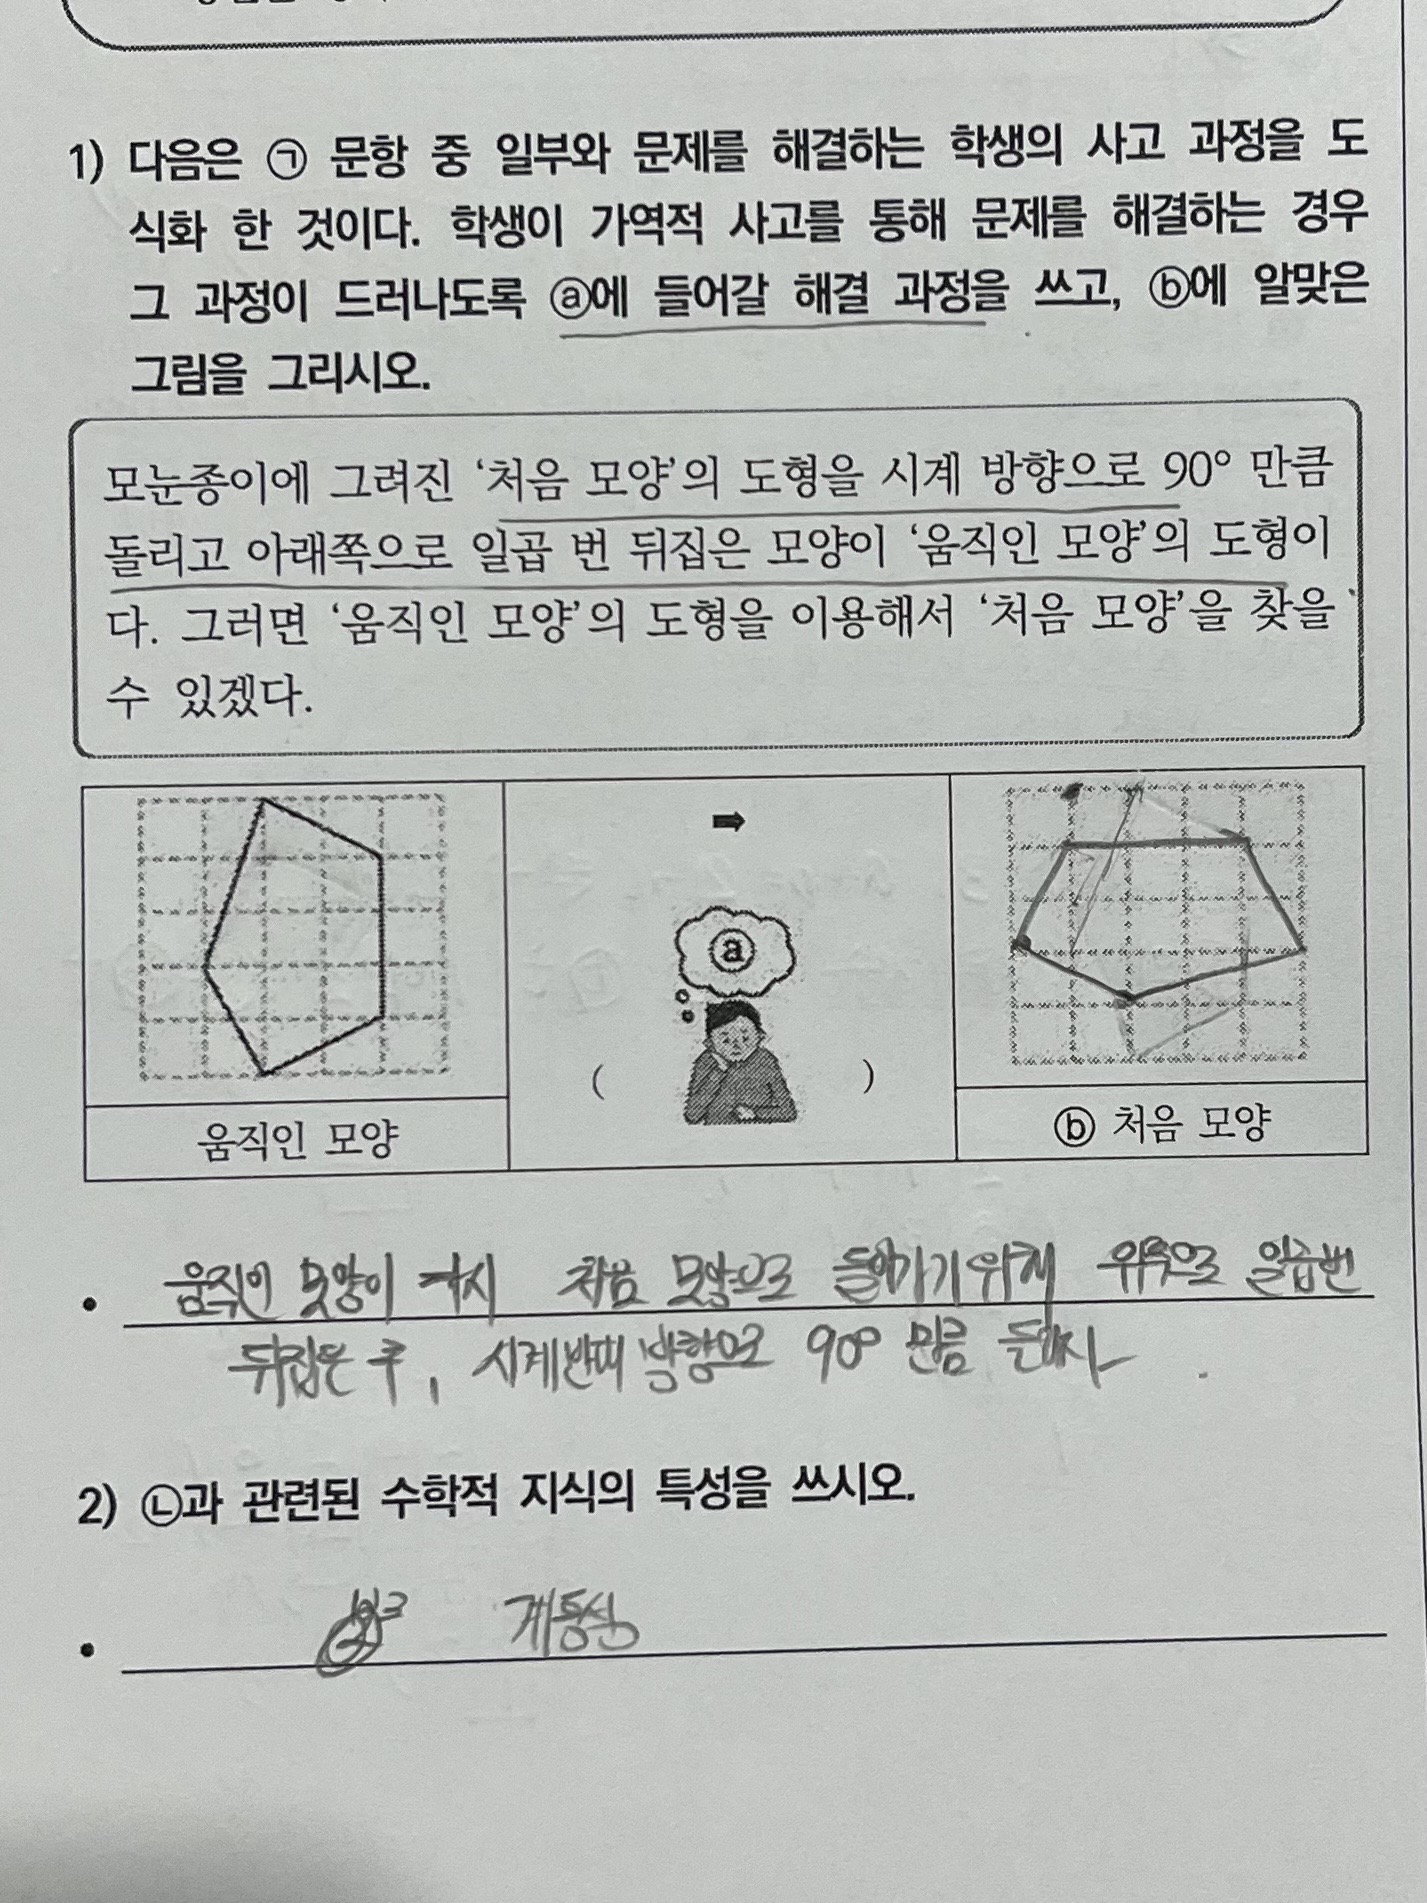 1) 다음은 ㉠ 문항 중 일부와 문제를 해결하는 학생의 사고 과정을 도
식화 한 것이다. 학생이 가역적 사고를 통해 문제를 해결하는 경우
그 과정이 드러나도록 ⓐ에 들어갈 해결 과정을 쓰고, ⓑ에 알맞은
그림을 그리시오.
모눈종이에 그려진 ‘처음 모양’의 도형을 시계 방향으로 90° 만큼
돌리고 아래쪽으로 일곱 번 뒤집은 모양이 ‘움직인 모양’의 도형이
다. 그러면 ‘움직인 모양’의 도형을 이용해서 ‘처음 모양’을 찾을
수 있겠다.
➡
ⓐ
( )
움직인 모양
ⓑ 처음 모양
• 움직인 모양이 다시 처음 모양으로 돌아가기 위해 위쪽으로 일곱번
뒤집은 후, 시계반대 방향으로 90° 만큼 돌리자.
2) ㉡과 관련된 수학적 지식의 특성을 쓰시오.
• 계통성